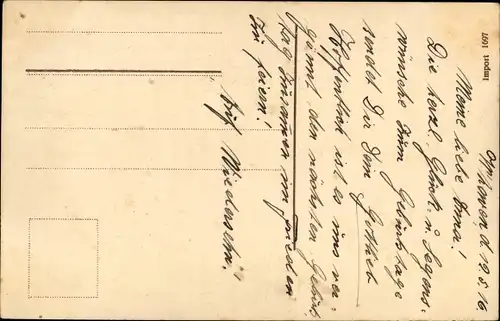 Wilkowen, d. 19.5.16.
Meine liebe Erna!
Die herzl. Glück- u. Segens-
wünsche zum Geburtstage
sendet Dir Dein Gottlieb
Hoffentlich ist es uns ver-
gönnt den nächsten Geburts
tag zusammen im Frieden
zu feiern!
Auf Wiedersehn!
Import 1697